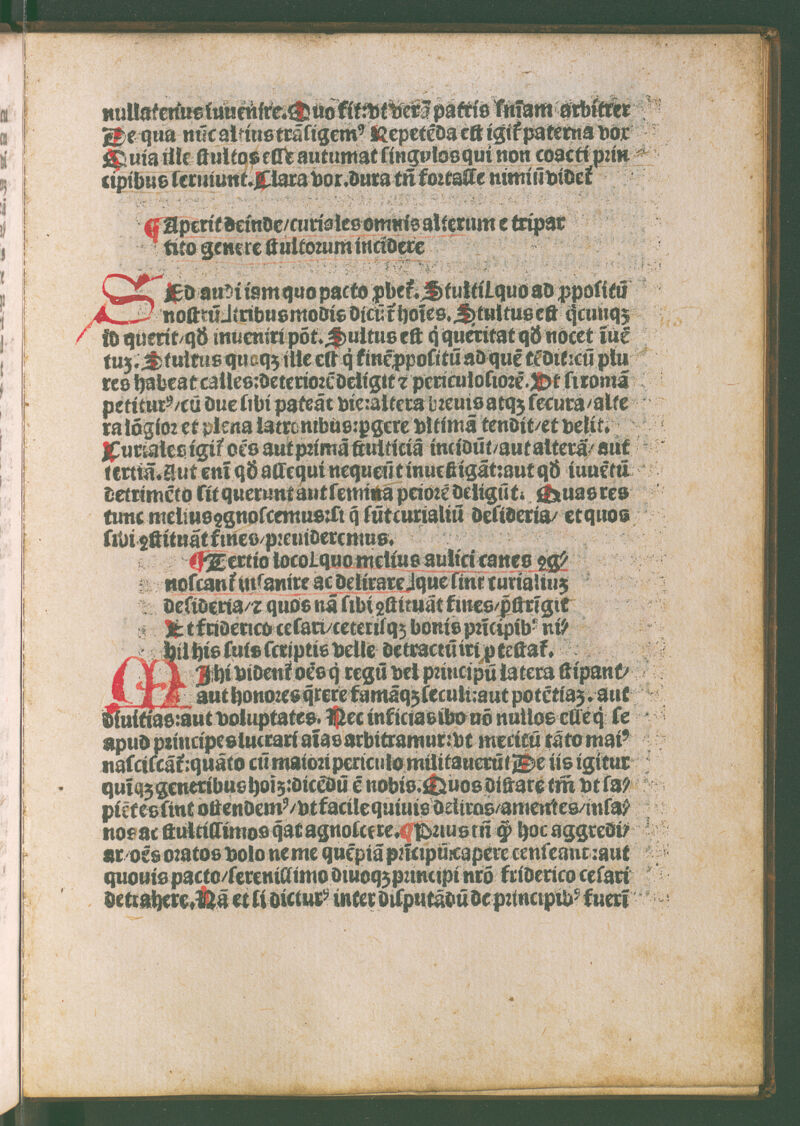 nullatenus inuenire. Quo fit: vt verã patris sñiam arbitrer
De qua nũc altius trãsigemꝰ Repetẽda est igit̃ paterna vox
Quia ille stultos esse autumat singulos qui non coacti prin
cipibus seruiunt. Clara vox. dura tñ fortasse nimiũ videt̃
¶ Aperit deinde/ curiales omnis alterum e tripar
tito genere stultorum incidere
SEd audi iam quo pacto ꝓbet̃. Stulti[quo ad ꝓpositũ
nostrũ]tribus modis dicũt̃ hoĩes. Stultus est q̃cunqꝫ
id querit/ qđ inueniri põt. Sultus est q̓ queritat qđ nocet ĩuẽ
tuꝫ. Stultus quoqꝫ ille est q̓ finẽ ꝓpositũ ad quẽ tẽdit: cũ plu
res habeat calles: deteriorẽ deligit ⁊ periculosiorẽ. Vt si romã
petiturꝰ/ cũ due sibi pateãt vie: altera breuis atqꝫ secura/ alte
ra lõgior et plena latronibus: ꝑgere vltimã tendit/ et velit.
Curiales igit̃ oẽs aut primã stulticiã incidũt/ aut alterã/ aut
tertiã. Aut enĩ qđ assequi nequeũt inuestigãt: aut qđ inuẽtũ
detrimẽto sit querunt aut semina peiorẽ deligũt. Quas res
tunc melius ꝯgnoscemus: si q̃ sũt curialiũ desideria/ et quos
sibi ꝯstituãt fines/ preuideremus.
¶ Tertio loco[quo melius aulici canes ꝯg⸗
noscant̃ insanire ac delirare]que sint curialiuꝫ
desideria/ ⁊ quos nã sibi ꝯstituãt fines/ p̃strĩgit
Et friderico cesari/ ceterisqꝫ bonis prĩcipibꝰ ni⸗
hil his suis scriptis velle detractũ iri ꝓtestat̃.
MIhi vident̃ oẽs q̓ regũ vel principũ latera stipant/
aut honores q̃rere famãqꝫ seculi: aut potẽtiaꝫ. aut
diuitias: aut voluptates. Nec inficias ibo nõ nullos esse q̓ se
apud principes lucrari aĩas arbitramur: vt meritũ tãto maiꝰ
nasciscãt̃: quãto cũ maiori periculo militauerũt De iis igitur
quĩqꝫ generibus hoĩꝫ: dicẽdũ ẽ nobis. Quos distare tm̃ vt sa⸗
piẽtes sint ostendemꝰ/ vt facile quiuis deliros/ amentes/ insa⸗
nos ac stultissimos q̃at agnoscere. ¶ Prius tñ q̃ꝫ hoc aggredi⸗
ar/ oẽs oratos volo ne me quẽpiã prĩcipũ: capere censeant: aut
quouis pacto/ serenissimo diuoqꝫ principi nrõ friderico cesari
detrahere. Nã et si dicturꝰ inter disputãdũ de principibꝰ fueri